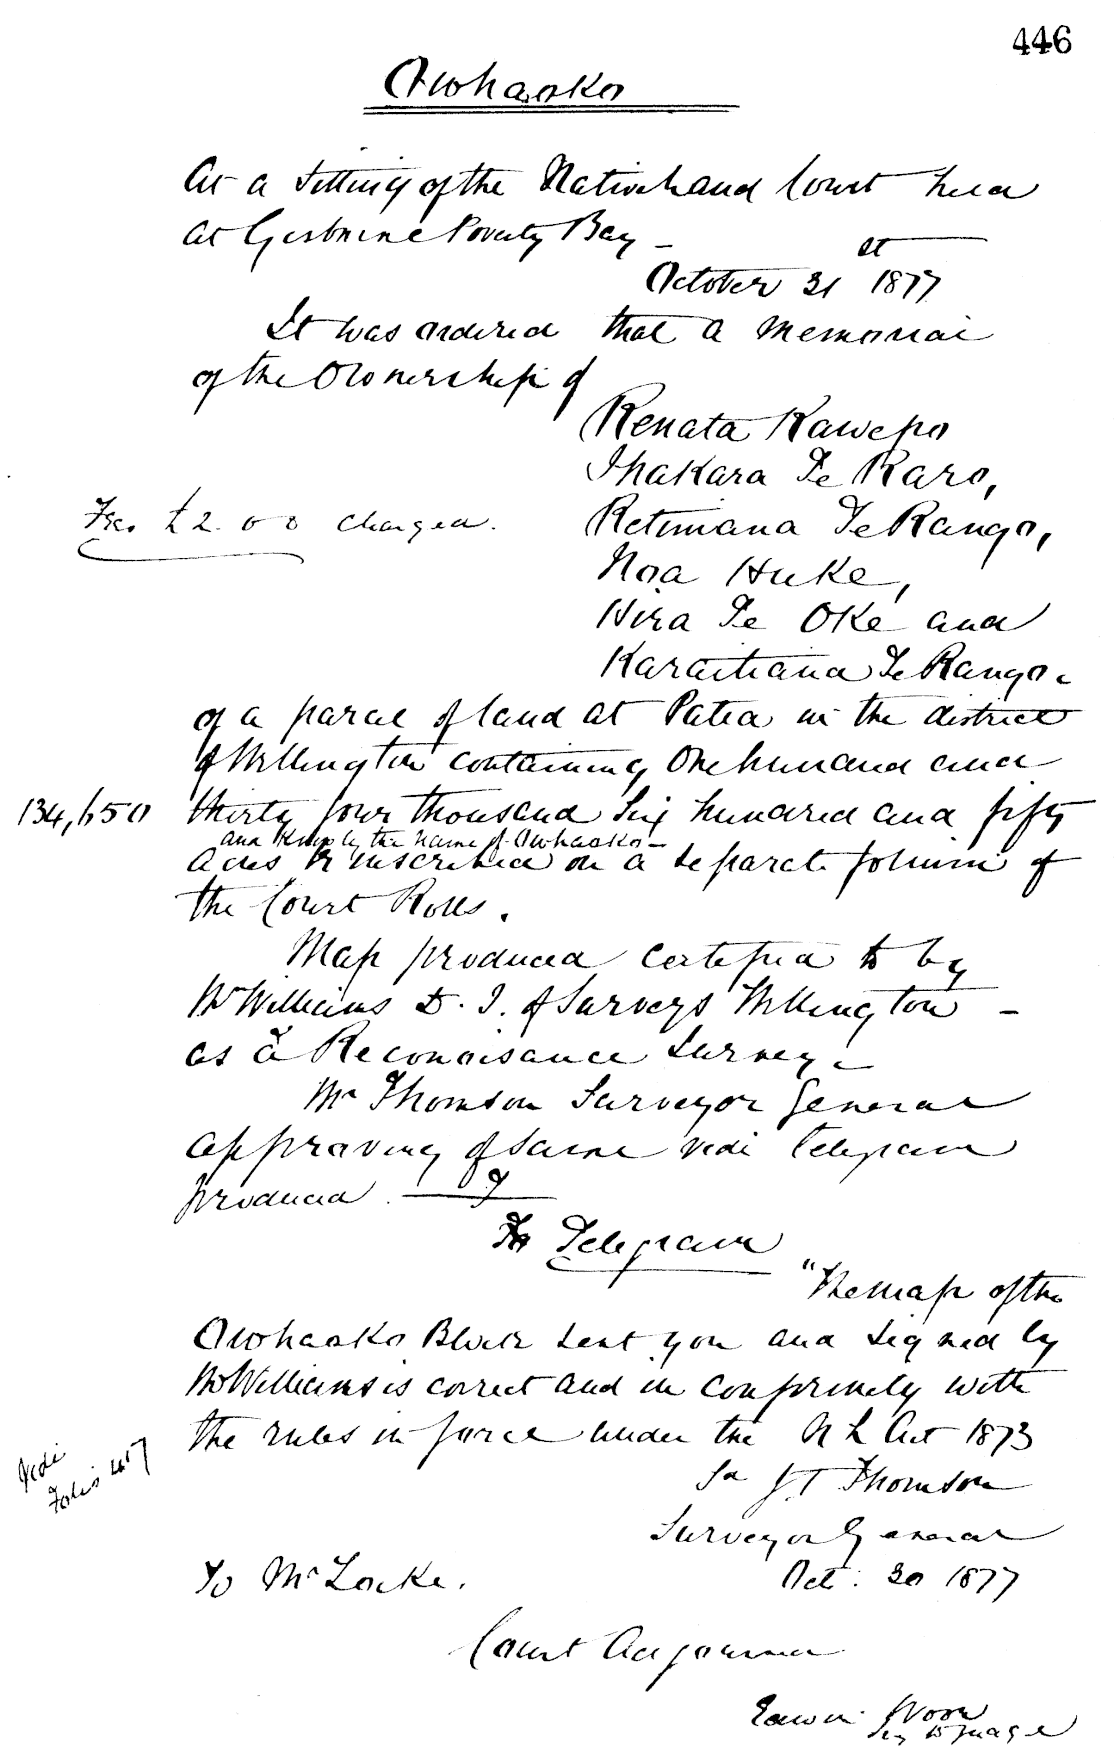 446
Owhaoko
At a Sitting of the Native Land Court held
at Gisborne Poverty Bay –
October 31st 1877
It was ordered that a Memorial
of the Ownership of
Renata Kawepo
Ihakara Te Raro,
Fees £2.0.0 charged.
Retimana Te Rango,
Noa Huke,
Hira Te Oke and
Karaitiana Te Rango.
of a parcel of land at Patea in the district
of Wellington containing One hundred and
134,650 thirty four thousand Six hundred and fifty
and known by the name of Owhaoko –
acres be inscribed on a separate folium of
the Court Rolls.
Map produced certified to by
Mr Williams D. I. of Surveys Wellington –
as a Reconaisance Survey. –
Mr Thomson Surveyor General
approving of same vide telegram
produced.
Telegram
"The map of the
Owhaoko Block sent you and signed by
Mr Williams is correct and in conformity with
the rules in force under the N L Act 1873
Vide
Folio 457
Sd J T Thomson
Surveyor General
To Mr Locke.
Oct: 30 1877
Court Adjourned
Edwin Woon